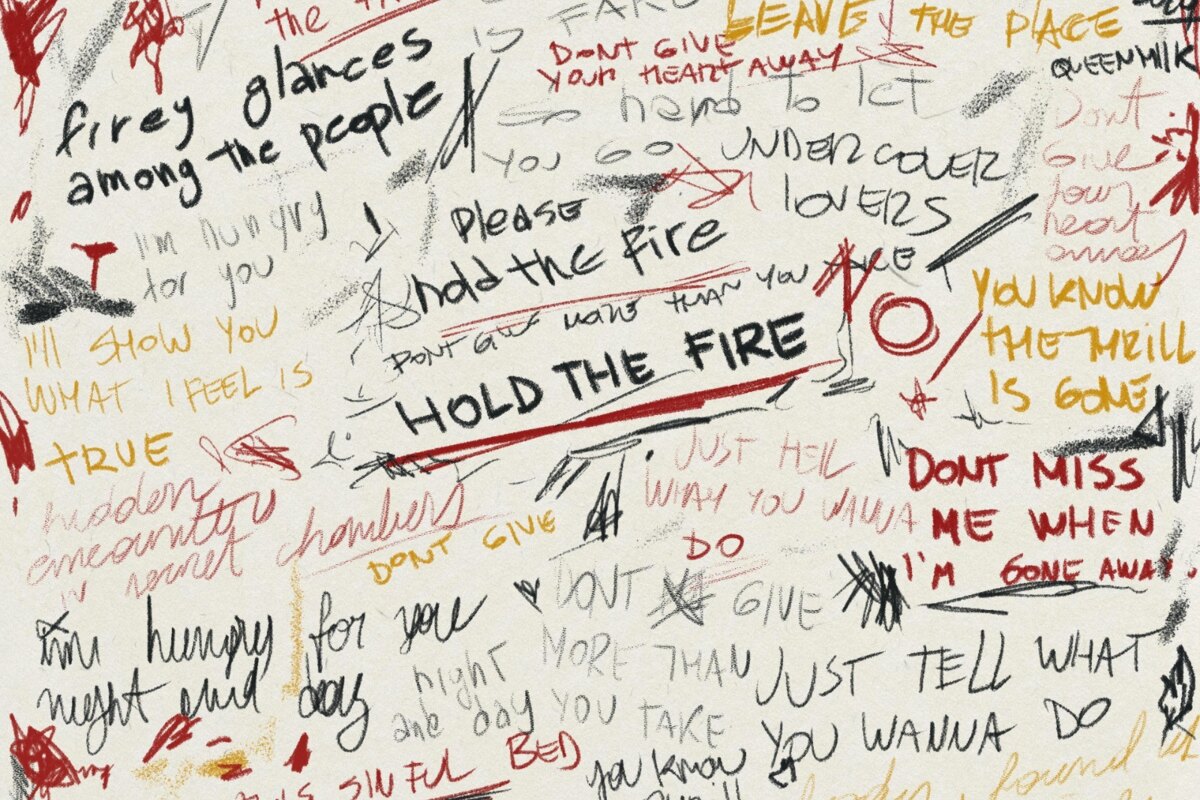 the
firey glances
among the people
I'm hungry
for you
I'll SHOW YOU
WHAT I FEEL IS
TRUE
hidden
in secret chambers
DONT GIVE
im hungry for you
night and day
SINFUL BED
IS FAKE
DONT GIVE
YOUR HEART AWAY
so hard to let
YOU GO
UNDERCOVER
lOVERS
PlEASE
hold the fire
DONT GIVE MORE THAN YOU TAKE
HOLD THE FIRE
JUST TELL
WHAT YOU WANNA
DO
DONT GIVE
MORE THAN
YOU TAKE
night
and day
you know
LEAVE THE PlACE
QUEENMILK
Dont
Give
your
heart
away
YOU KNOW
THE THRILL
IS GONE
DONT MISS
ME WHEN
I'M GONE AWAY.
JUST TELL WHAT
YOU WANNA DO
found